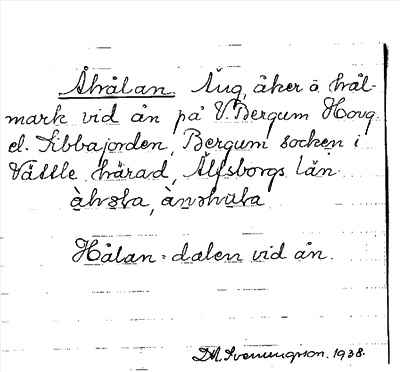 Åhålan. Äng, åker o hål-
mark vid ån på V. Bergum Hovg.
el. Sibbajorden, Bergum socken i
Vättle härad, Älfsborgs län
Hålan = dalen vid ån.
D.A. Svenungsson. 1938.